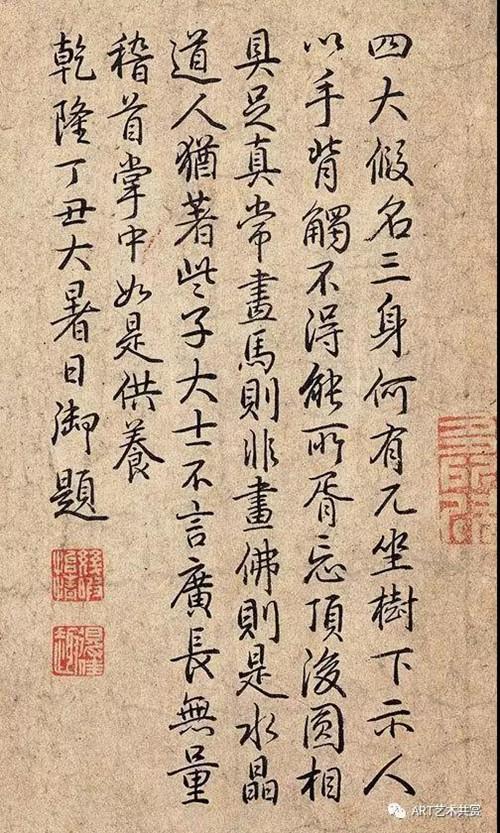 四大假名三身何有兀坐樹下示人
以手背觸不得能所胥忘頂後圓相
具足真常畫馬則非畫佛則是水晶
道人猶著些子大士不言廣長無量
稽首掌中如是供養
乾隆丁丑大暑日御題
幾暇怡情
得佳趣
ART艺术共赏